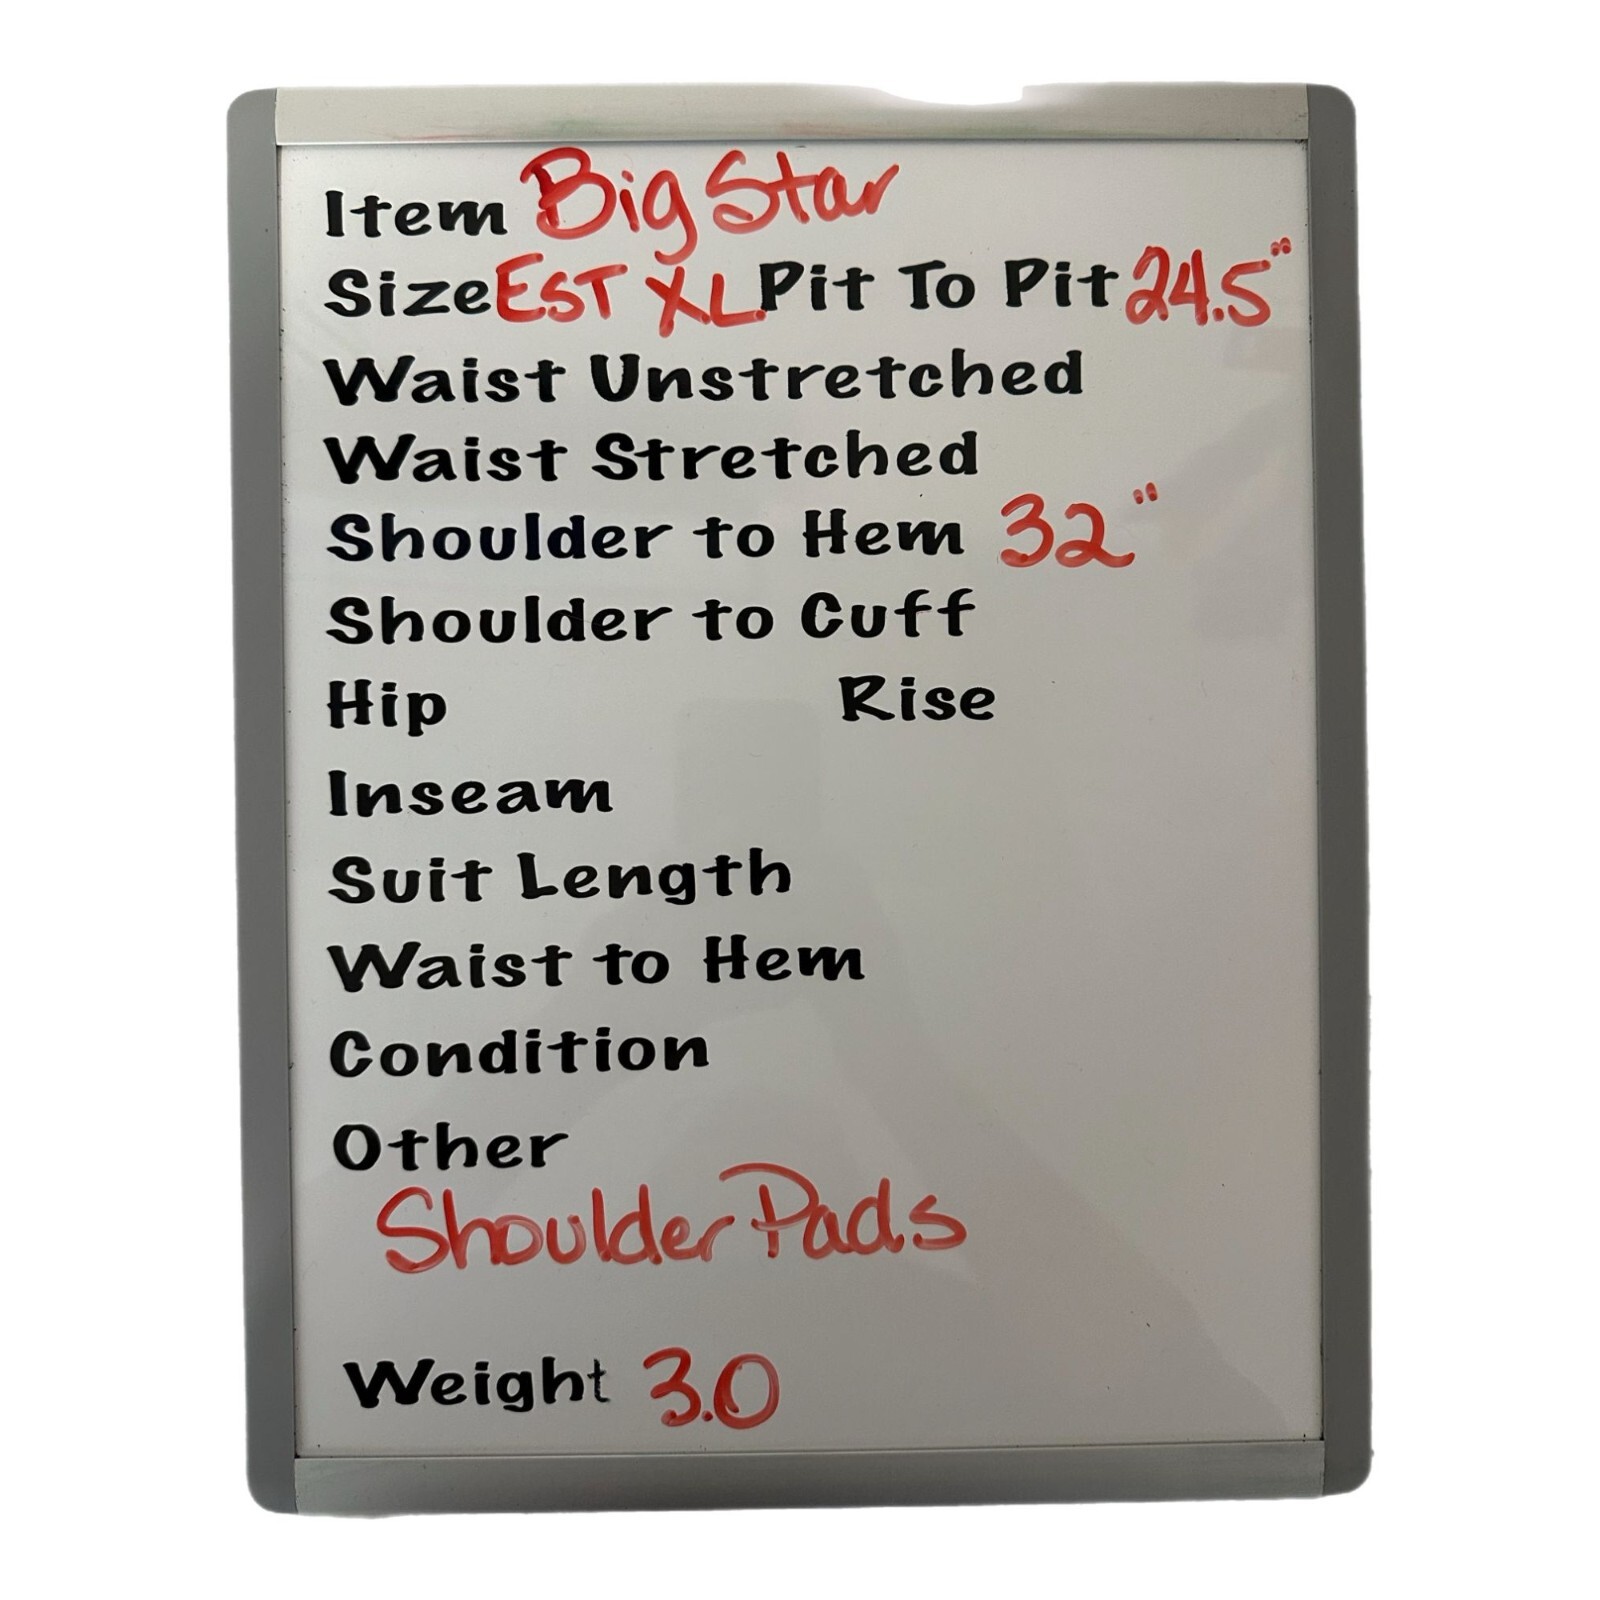 Item Big Star
Size EST XL Pit To Pit 24.5"
Waist Unstretched
Waist Stretched
Shoulder to Hem 32"
Shoulder to Cuff
Hip Rise
Inseam
Suit Length
Waist to Hem
Condition
Other
Shoulder Pads
Weight 3.0